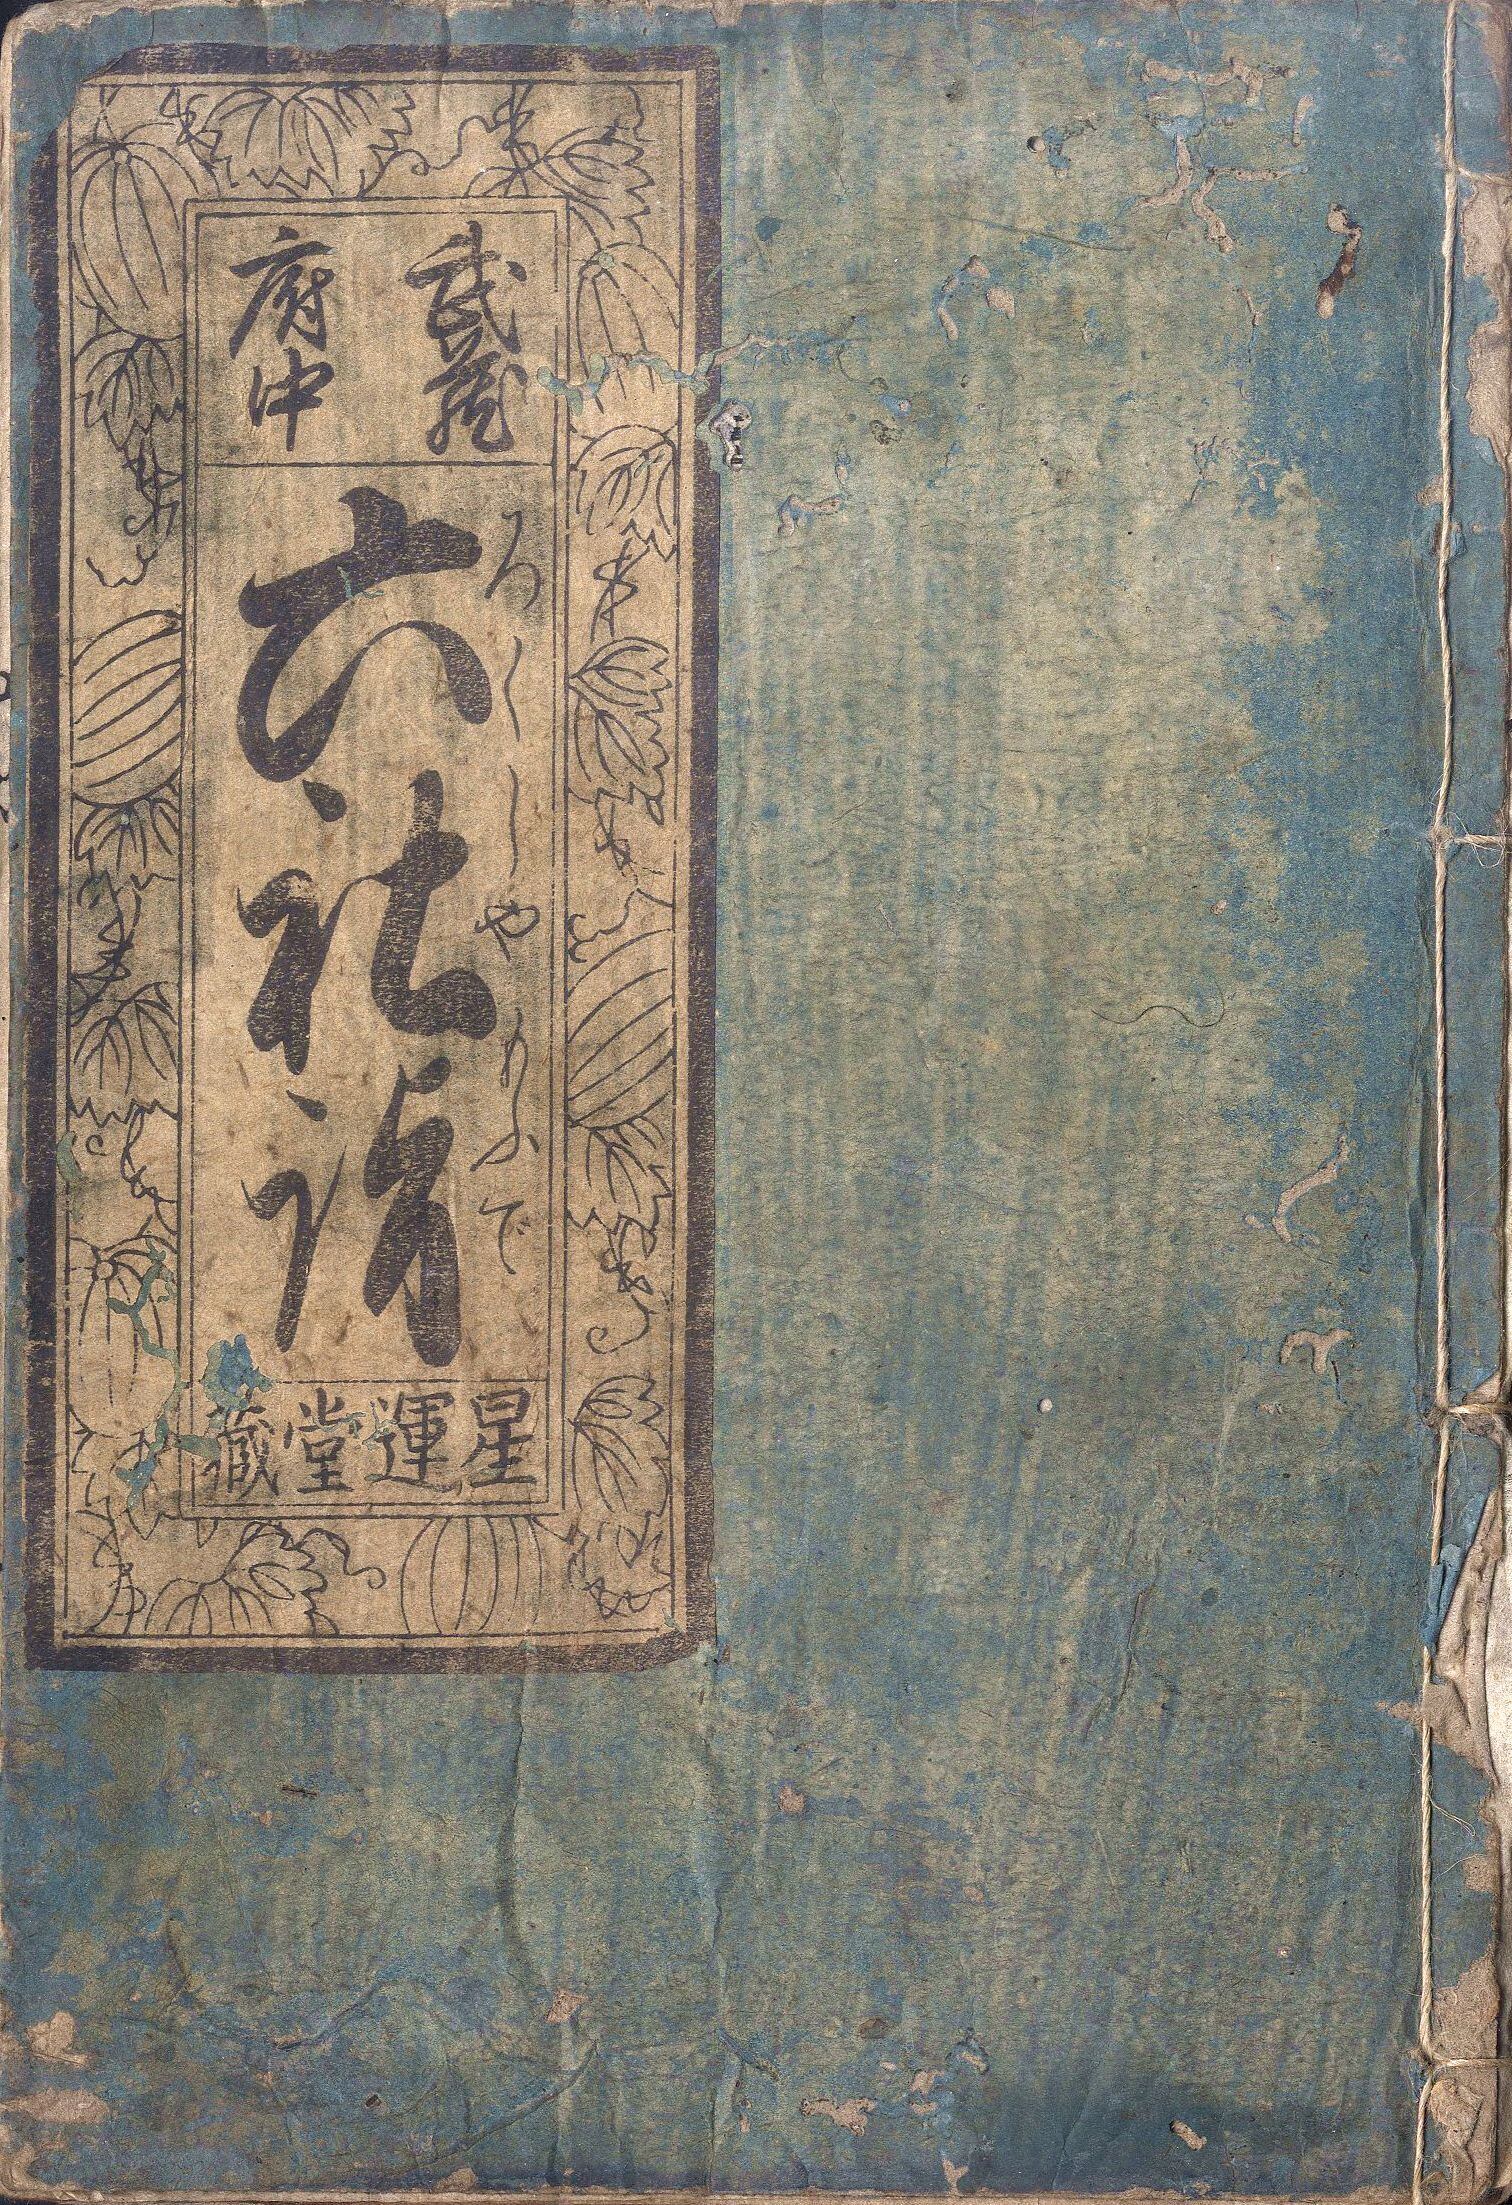 武蔵
府中
六社詣
ろくしやもふで
星運堂藏